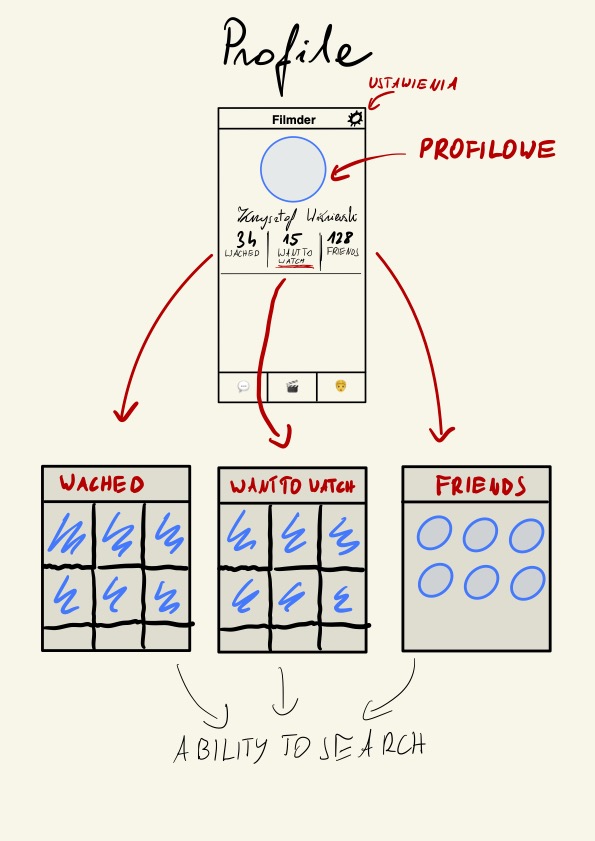 Profile
USTAWIENIA
Filmder
PROFILOWE
Krzysztof Wiśniewski
34 15 128
WACHED WANT TO FRIENDS
WATCH
WACHED WANT TO WATCH FRIENDS
ABILITY TO SEARCH